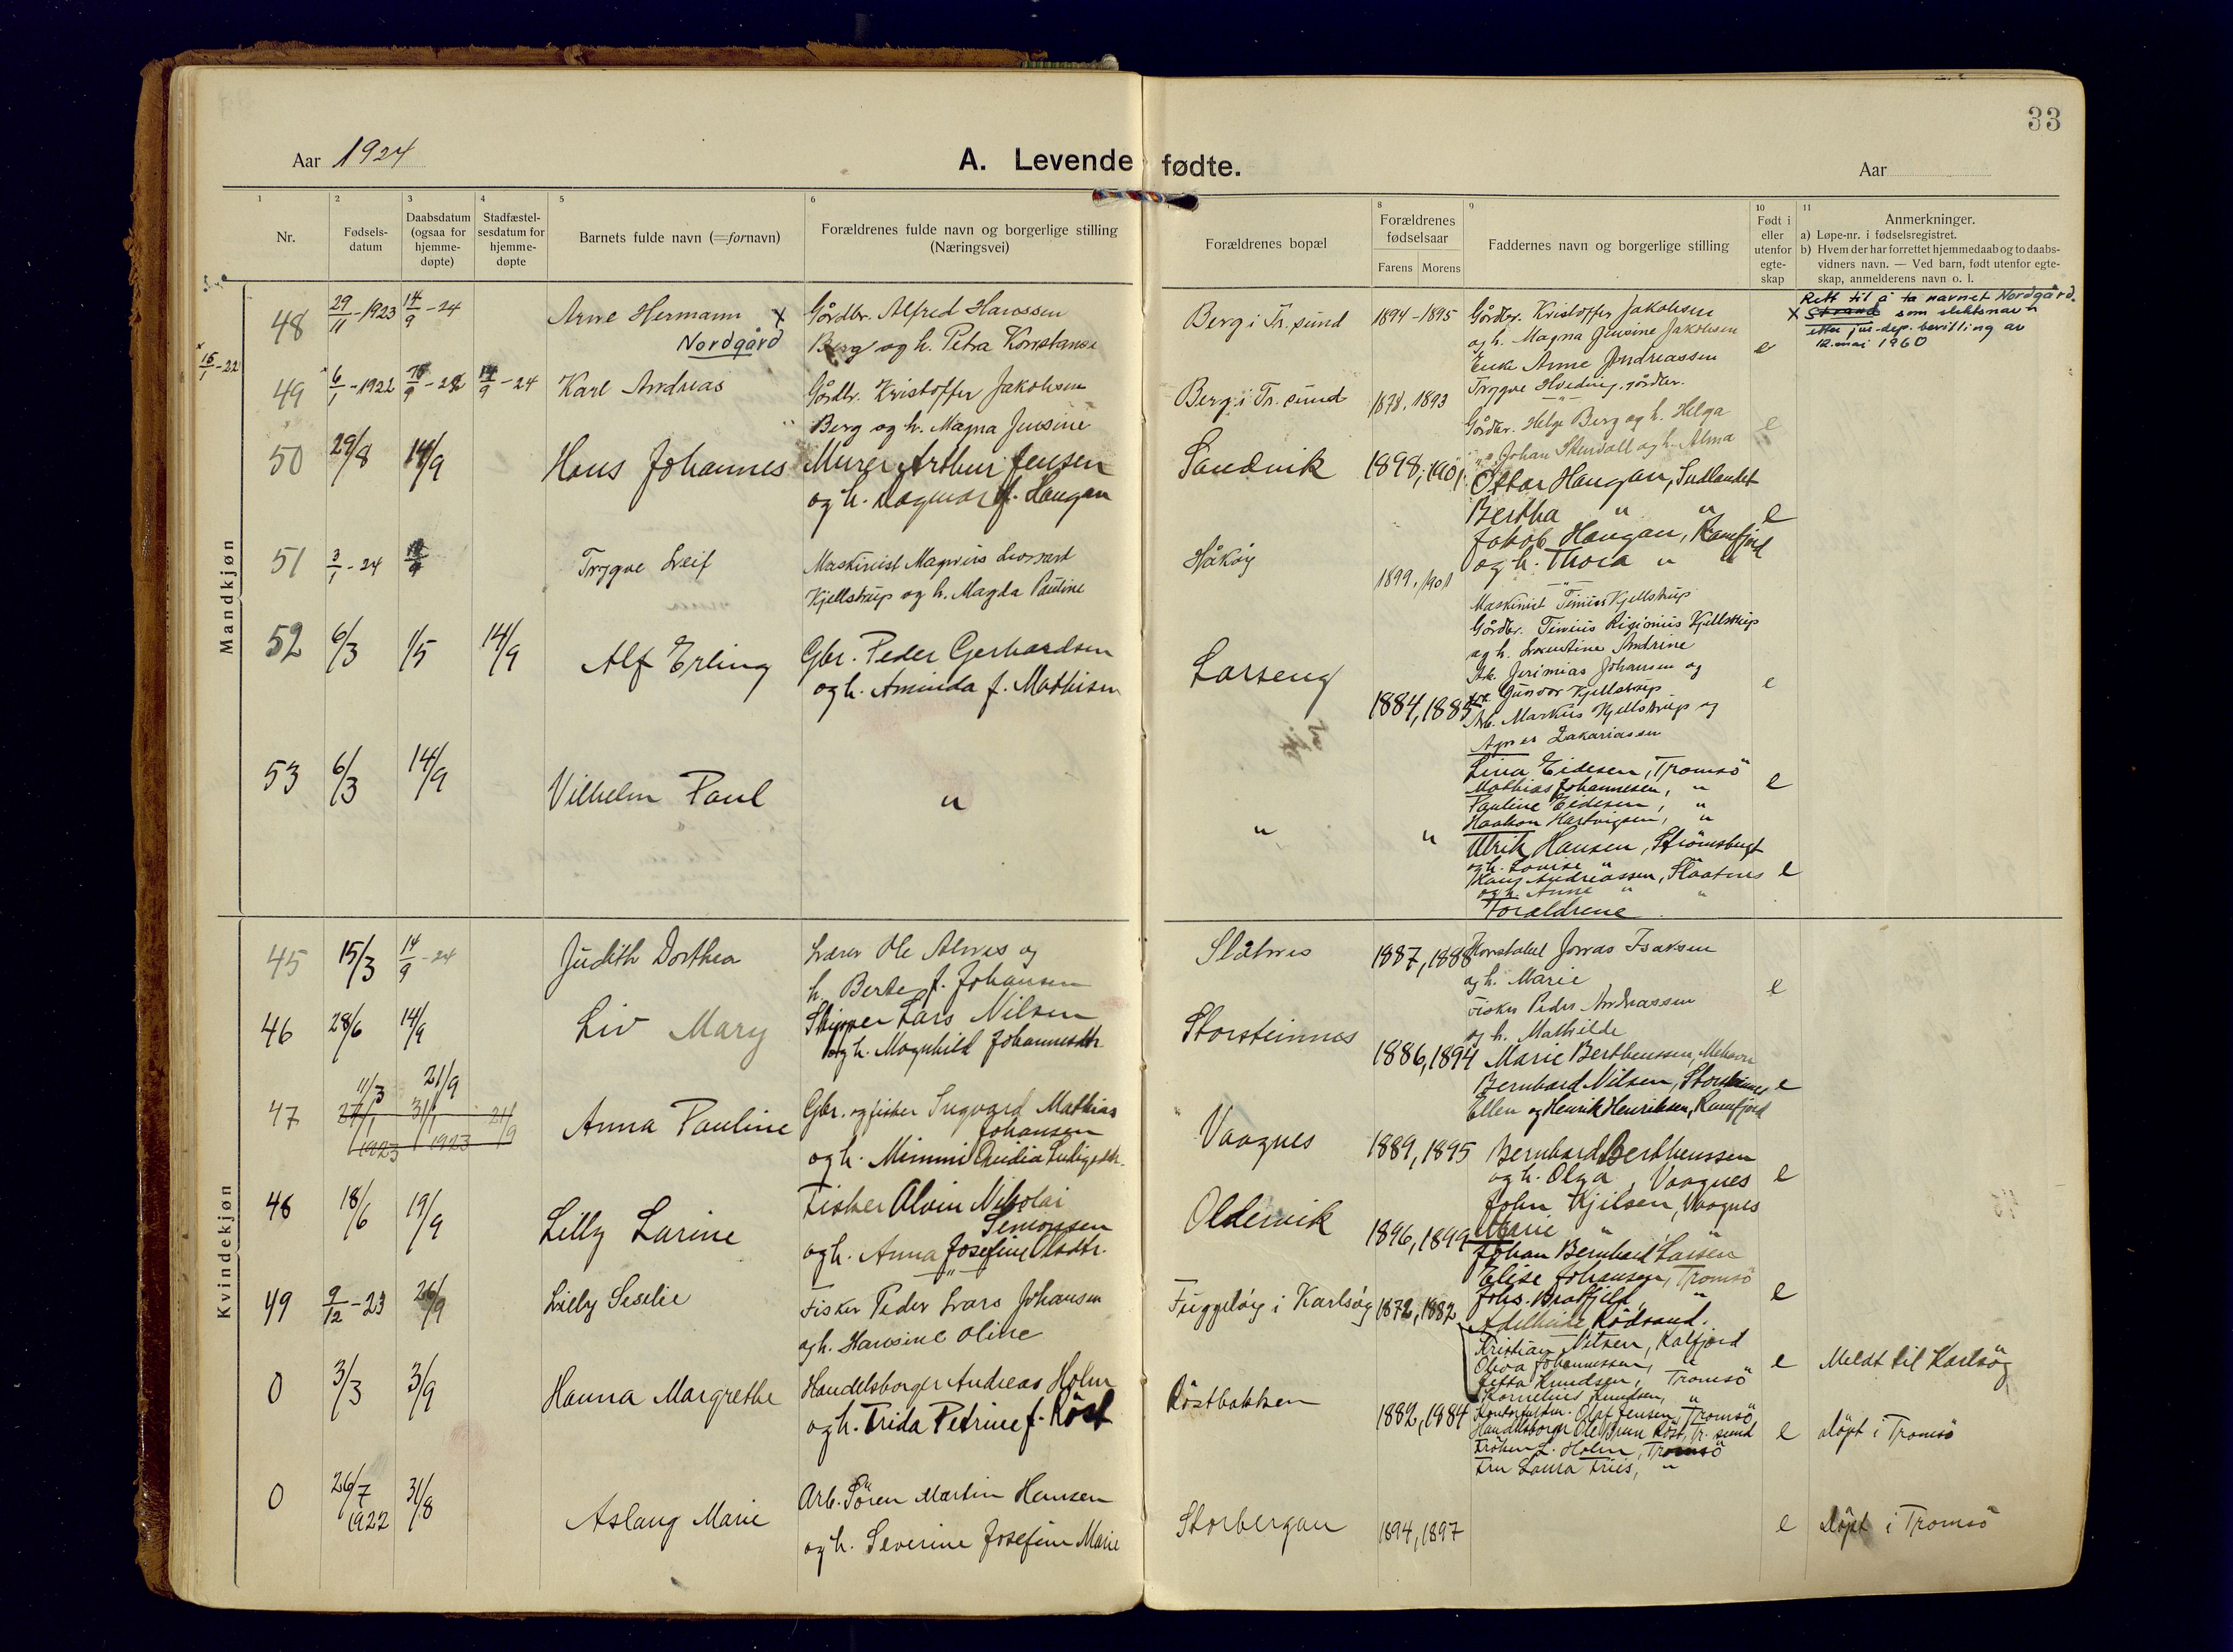 33
Aar 1924
A. Levende fødte.
Aar
1 2 3 4 5 6 8 9 10 11
Nr.
Fødsels-
datum
Daabsdatum
(ogsaa for
hjemme-
døpte)
Stadfæstel-
sesdatum for
hjemme-
døpte
Barnets fulde navn (=fornavn)
Forældrenes fulde navn og borgerlige stilling
(Næringsvei)
Forældrenes bopæl
Forældrenes
fødselsaar
Farens Morens
Faddernes navn og borgerlige stilling
Født i
eller
utenfor
egte-
skap
Anmerkninger.
a) Løpe-nr. i fødselsregistret.
b) Hvem der har forrettet hjemmedaab og to daabs-
vidners navn. — Ved barn, født utenfor egte-
skap, anmelderens navn o. l.
Mandkjøn
48 29/11-1923 14/9-24 Arne Hermann x
Nordgård
Gårdbr. Alfred Hanssen
Berg og h. Petra Konstanse
Berg i Tr. sund 1894-1895
Gårdbr. Kristoffer Jakobsen
og h. Magna Jensine Jakobsen
Enke Anne Andreassen
Trygve Hveding, gårdbr.
e
Rett til å ta navnet Nordgård.
x Strand som slektsnavn
etter jus.dep. bevilling av
12. mai 1960
15/1-22
49 6/1-1922 14/9-24 Karl Andreas
Gårdbr. Kristoffer Jakobsen
Berg og h. Magna Jensine
Berg i Tr. sund 1878, 1893
Gårdbr. Helge Berg og h. Helga
" Johan Stenvall og h. Alma
e
50 29/8 14/9 Hans Johannes
Murer Arthur Jensen
og h. Dagmar f. Haugan
Sandvik 1898, 1901
Ottar Haugan, Sudlandet
Bertha " "
Jakob Haugan, Ramfjord
og h. Thora " "
e
51 3/1-24 14/9 Trygve Leif
Maskinist Magnus Leonard
Kjellstrup og h. Magda Pauline
Håkøy 1899, 1901
Maskinist Tinius Kjellstrup
Gårdbr. Tinius Kjellstrup
og h. Andrine
Arb. Jerimias Johansen og
Gunvor Kjellstrup
Arb. Markus Kjellstrup og
Agnes Zakariassen
e
52 6/3 1/5 14/9 Alf Erling
Gbr. Peder Gerhardsen
og h. Aminda f. Mathisen
Larseng 1884, 1885
Lina Eidesen, Tromsö
Mathias Johannesen, "
Pauline Eidesen, "
Haakon Hartvigsen, "
e
53 6/3 14/9 Vilhelm Paul
" " "
Ulrik Hansen, Strömsbugt
og h. Lovise "
Hans Andreassen, Slaatnes
og h. Anne " "
Forældrene
e
Kvindekjøn
45 15/3 14/9-24 Judith Dorthea
Lærer Ole Alnes og
h. Berte f. Johansen
Slåtnes 1887, 1888
Konstabel Jonas Isaksen
og h. Marie
Fisker Peder Andreassen
og h. Mathilde
e
46 28/6 14/9 Liv Mary
Skipper Lars Nilsen
og h. Magnhild Johannesdtr.
Storsteinnes 1886, 1894
Marie Bertheussen, Mehavn
Bernhard Nilsen, Storsteinnes
Ellen og Henrik Henriksen, Ramfjord
e
47 11/3 21/9
27/1 1923 31/1 1923 21/9
Anna Pauline
Gbr. og fisker Ingvard Mathias
Johansen
og h. Mimmi Ludvigsdtr.
Vaagnes 1889, 1895
Bernhard Bertheussen
og h. Olga, Vaagnes
John Kjilsen, Vaagnes
Marie " "
e
48 18/6 19/9 Lilly Larine
Fisker Alvin Nikolai
Simonsen
og h. Anna Josefine Olsdtr.
Oldervik 1896, 1899
Johan Bernhard Larsen
Elise Johansen, Tromsö
Johs. Bratfjell "
Adelheide Rödsand.
e
49 9/12-23 26/9 Lilly Seselie
Fisker Peder Lars Johansen
og h. Hansine Oline
Fuggeløy i Karlsøy 1872, 1882
Kristian Nilsen, Kalfjord
Oliva Johannessen, "
Jitta Knudsen, Tromsö
Kornelius Knudsen, "
e Meldt til Karlsøy
0 3/3 3/9 Hanna Margrethe
Handelsborger Andreas Holm
og h. Frida Petrine f. Röst
Röstbakken 1882, 1884
Olaf Jensen, Tromsö
Handelsborger Ole Brun Röst, Tr. sund
Fröken L. Holm, Tromsö
Fru Laura Friis, "
e Döpt i Tromsö
0 26/7 1922 31/8 Aslaug Marie
Arb. Sören Martin Hansen
og h. Severine Josefine Marie
Storbergan 1894, 1897
e Döpt i Tromsö